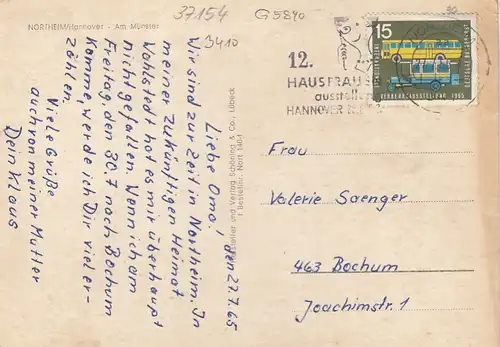 NORTHEIM/Hannover - Am Münster
37154
G5890
3410
den 27.7.65
Liebe Oma!
Wir sind zur Zeit in Northeim. In
meiner zukünftigen Heimat
Wohlstedt hat es mir überhaupt
nicht gefallen. Wenn ich am
Freitag, den 30.7 nach Bochum
komme, werde ich Dir vieler-
zählen.
Viele Grüße
auch von meiner Mutter
Dein Klaus
Hersteller und Verlag Schöning & Co., Lübeck
Bestellnr. Nort
15
VERKEHRSAUSSTELLUNG 1965
12.
HAUSFRAU
ausstellu
HANNOVER
Frau
Valerie Saenger
463 Bochum
Joachimstr. 1